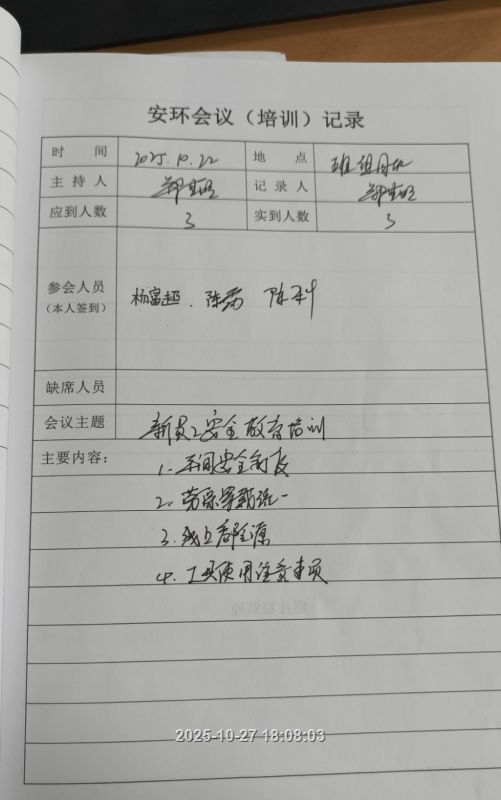 安环会议（培训）记录
时 间 2025.10.22 地 点 班组
主持人 郑 记录人 郑
应到人数 3 实到人数 3
参会人员 杨富超、陈 陈利
（本人签到）
缺席人员
会议主题 新员工安全教育培训
主要内容： 1. 车间安全制度
2. 劳保穿戴统一
3. 
4. 工具使用注意事项
2025-10-27 18:08:03